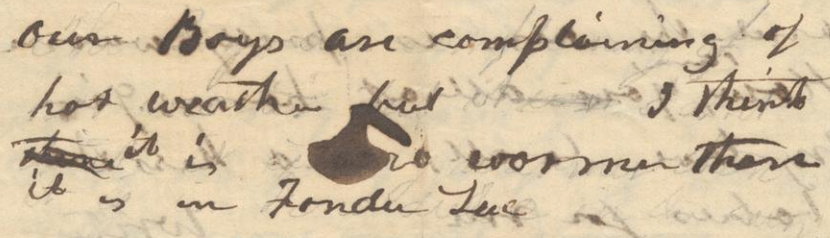 our Boys are complaining of
hot weather but I think
it is no wormer then
it is in Fondu Lac